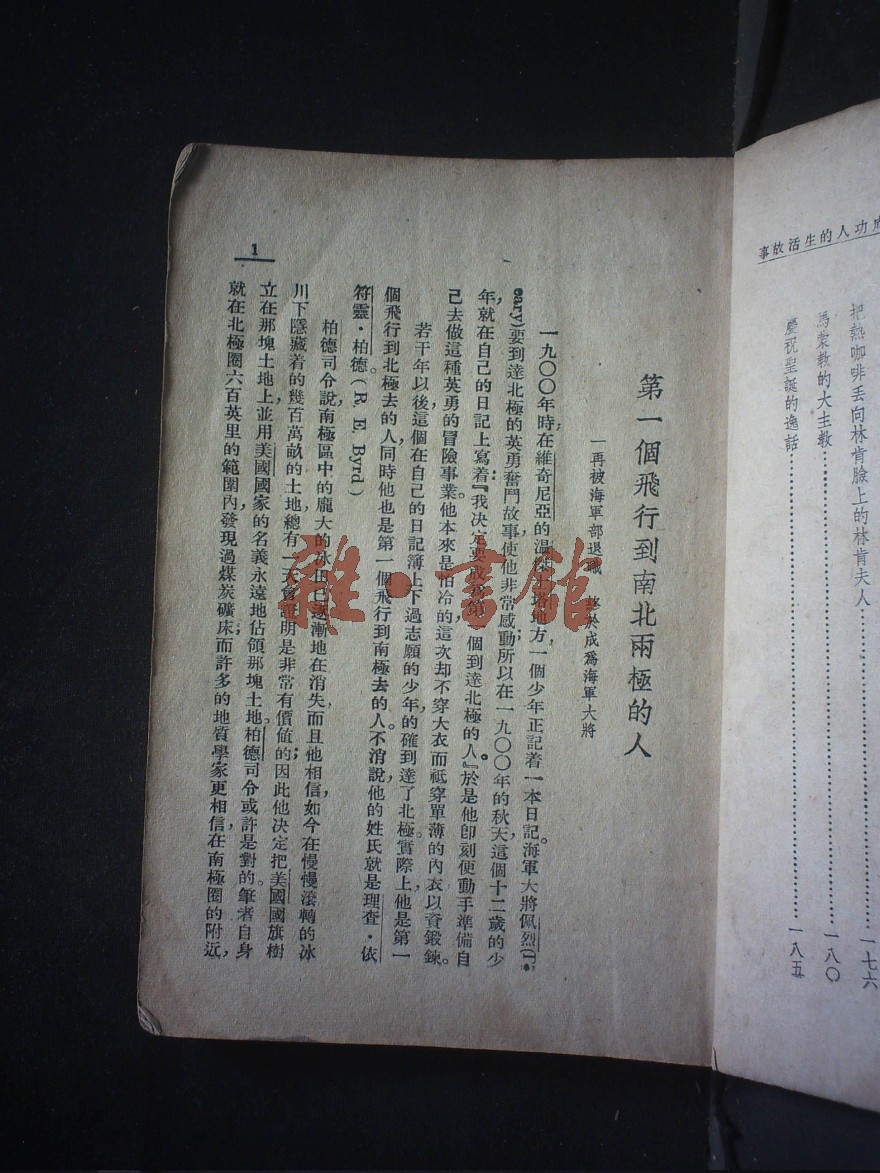 成功人的生活故事
把熱咖啡丟向林肯臉上的林肯夫人……………一七六
馬棠教的大主教……………一八〇
慶祝聖誕的逸話……………一八五
第一個飛行到南北兩極的人
一再被海軍部退職 終於成爲海軍大將
一九〇〇年時在維奇尼亞的溫傑士塔地方,一個少年正記着一本日記。海軍大將佩烈(
eary)要到達北極的英勇奮鬥故事使他非常感動;所以在一九〇〇年的秋天,這個十二歲的少
年就在自己的日記上寫着:『我决定要成爲第一個到達北極的人。』於是他卽刻便動手準備自
己去做這種英勇的冒險事業。他本來是怕冷的,這次却不穿大衣而祇穿單薄的內衣以資鍛鍊。
若干年以後,這個在自己的日記簿上下過志願的少年,的確到達了北極。實際上,他是第一
個飛行到北極去的人,同時他也是第一個飛行到南極去的人。不消說,他的姓氏就是理查·依
符靈·柏德(R. E. Byrd)
柏德司令說,南極區中的龐大的冰田已逐漸地在消失,而且他相信,如今在慢慢滾轉的冰
川下隱藏着的幾百萬畝的土地,總有一天會證明是非常有價值的;因此他决定把美國國旗樹
立在那塊土地上,並用美國國家的名義永遠地佔領那塊土地。柏德司令或許是對的。筆者自身
就在北極圈六百英里的範圍內,發現過煤炭礦床,而許多的地質學家更相信,在南極圈的附近,
1
雜·書館